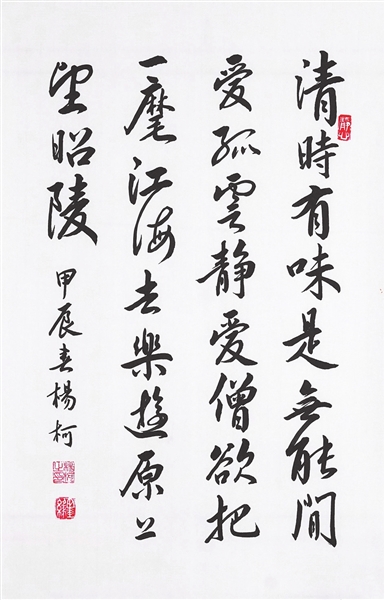 清時有味是無能閒
愛孤雲静愛僧欲把
一麾江海去樂遊原上
望昭陵
甲辰春楊柯